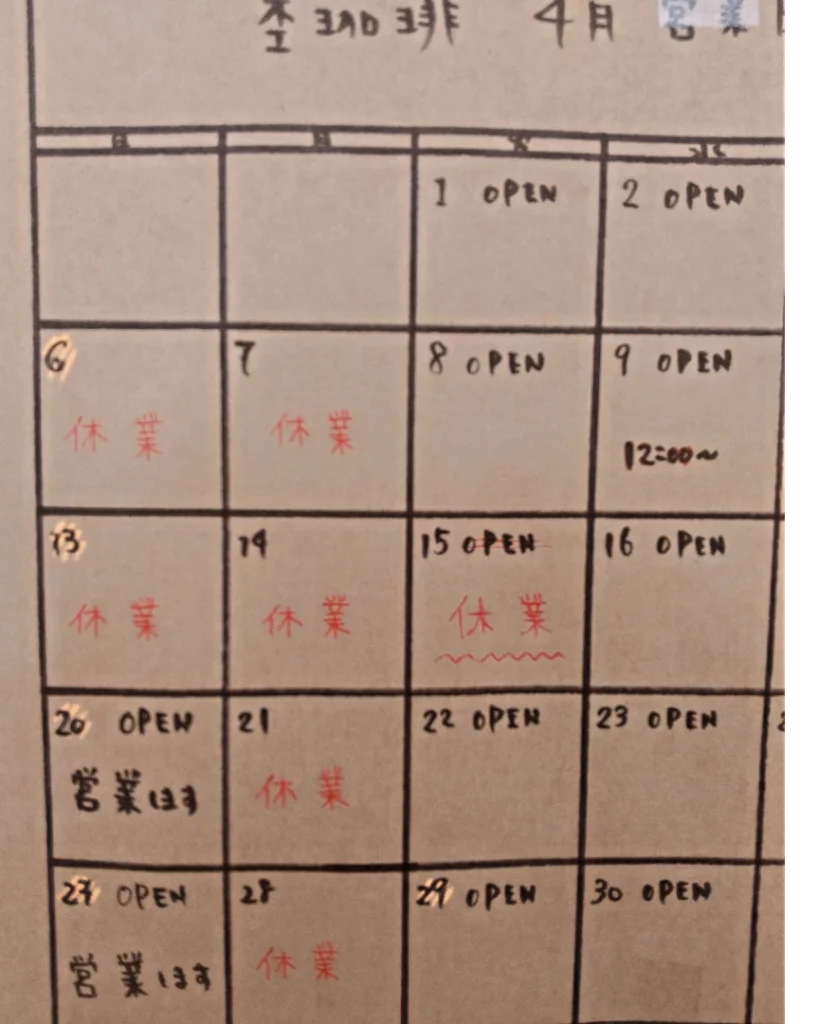 杢珈琲 4月 営業
日 月 火 水
1 OPEN 2 OPEN
6 7 8 OPEN 9 OPEN
休業 休業 12:00~
13 14 15 OPEN 16 OPEN
休業 休業 休業
20 OPEN 21 22 OPEN 23 OPEN
営業します 休業
27 OPEN 28 29 OPEN 30 OPEN
営業します 休業